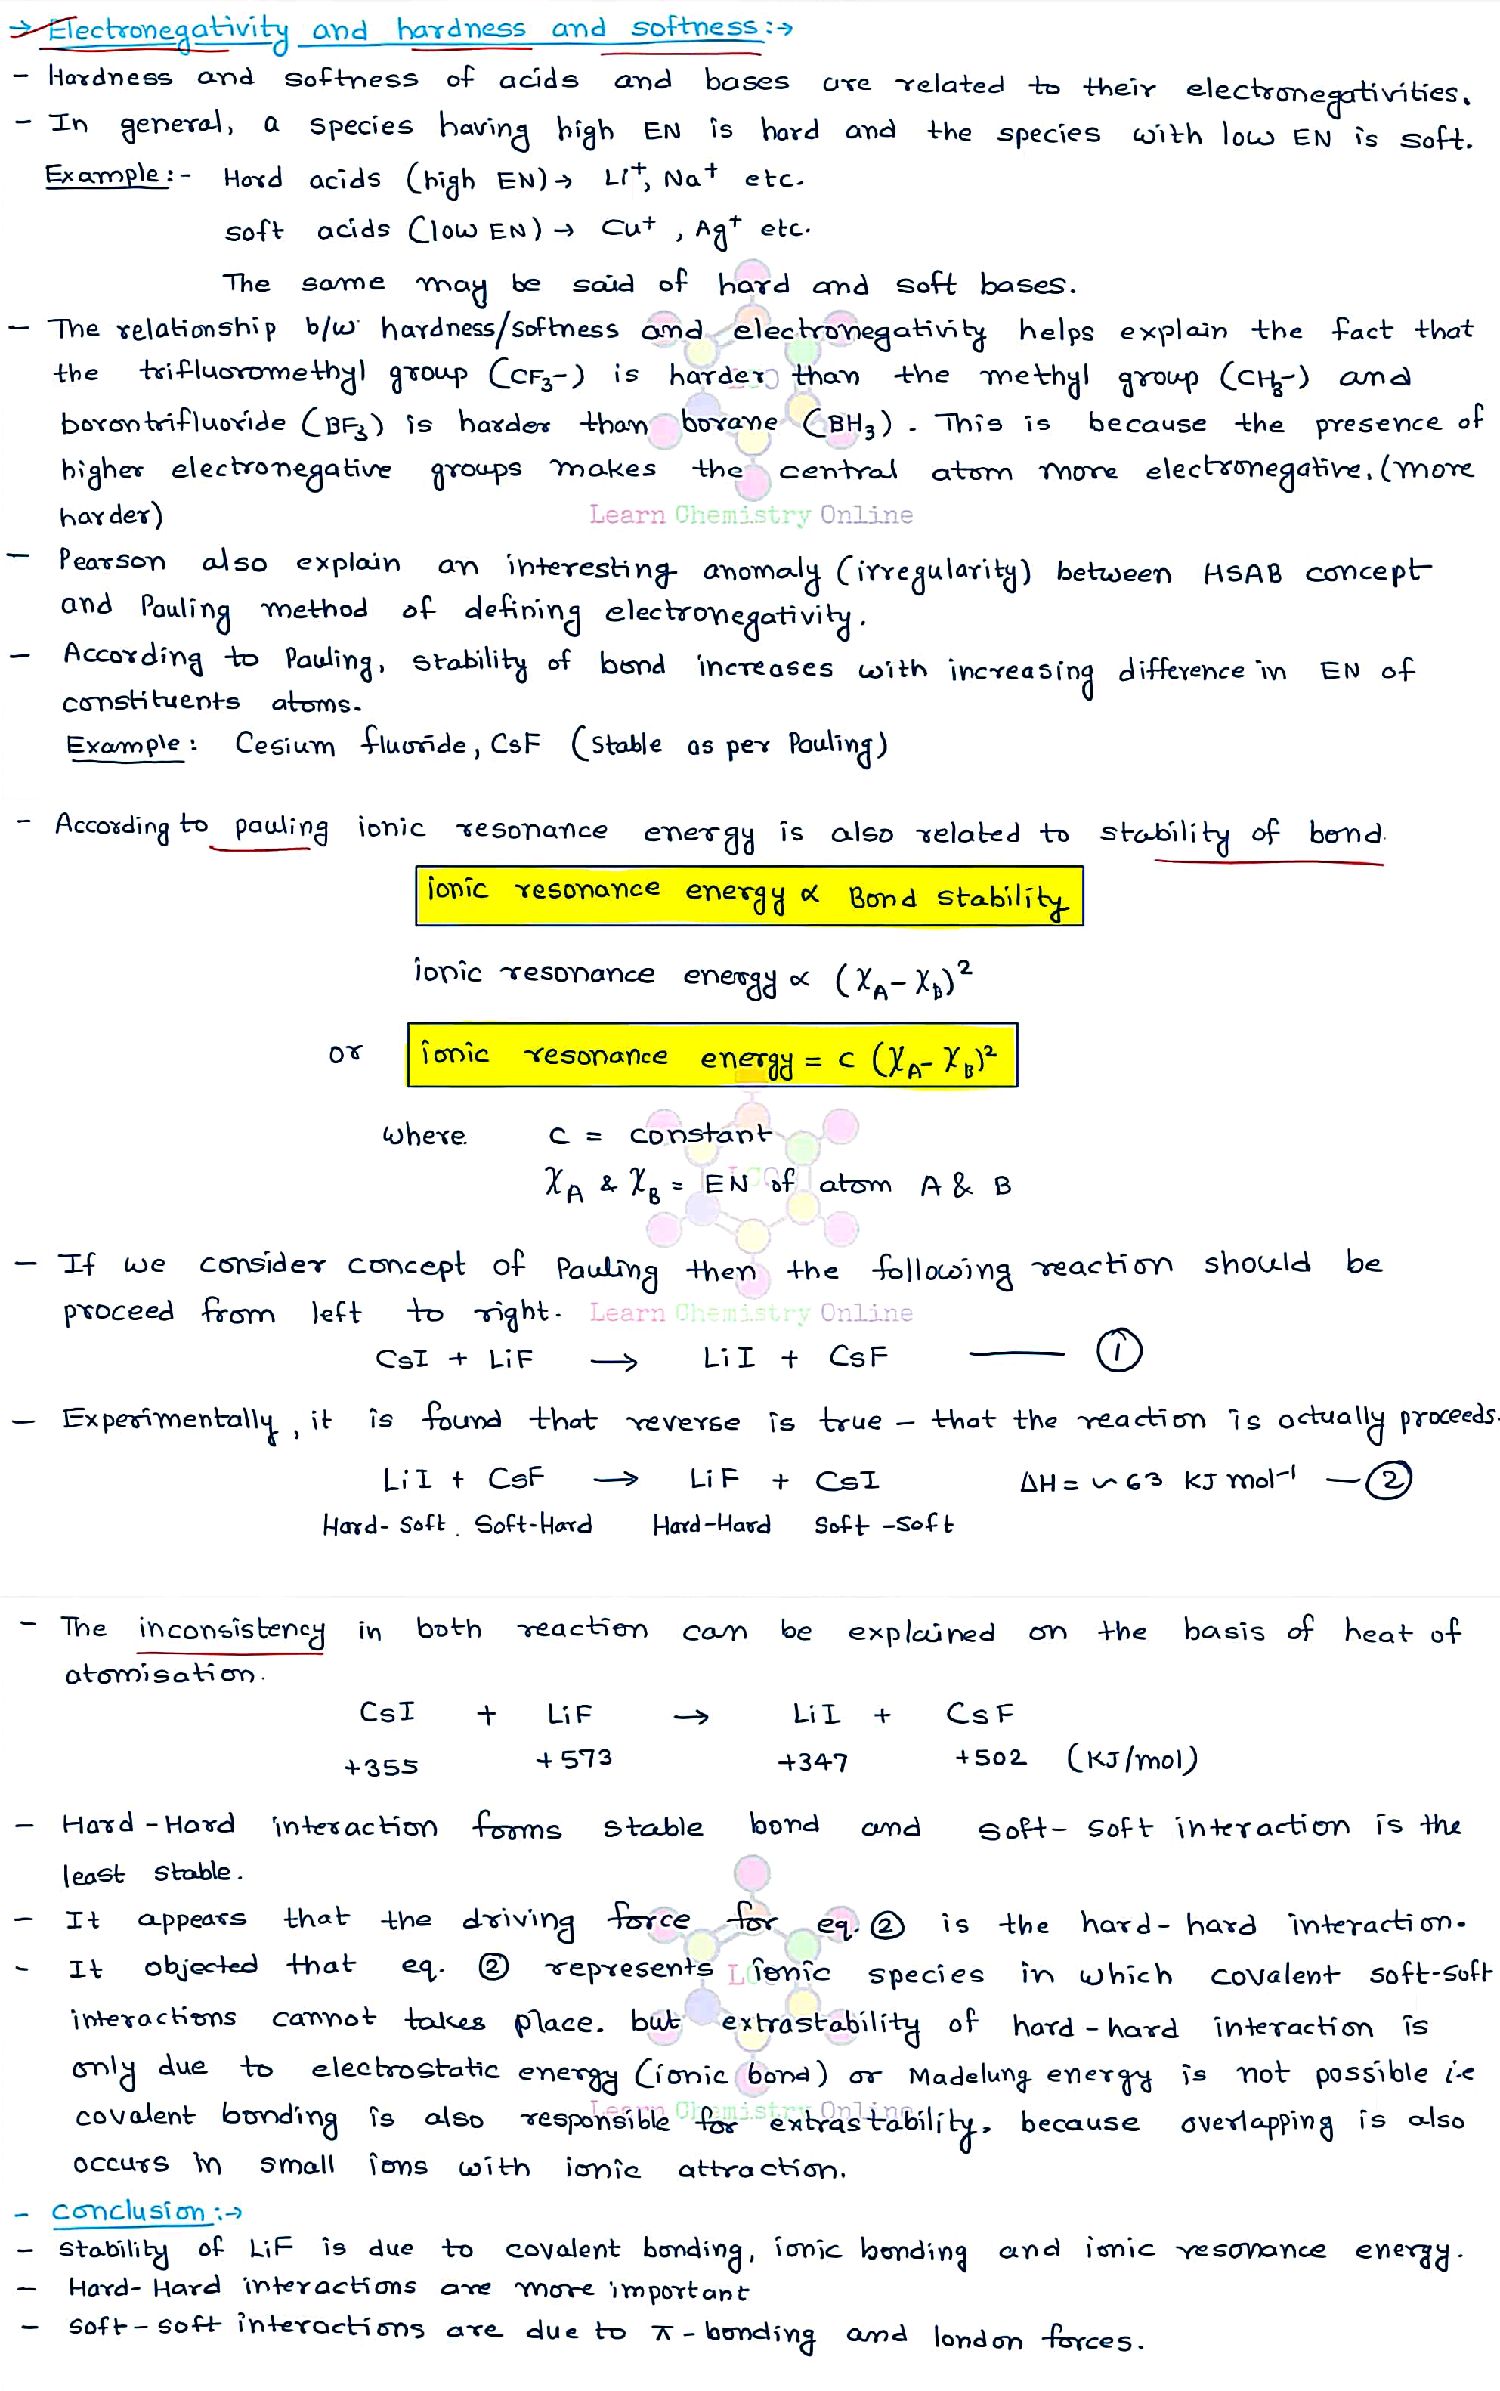 → Electronegativity and hardness and softness:→
- Hardness and softness of acids and bases are related to their electronegativities.
- In general, a species having high EN is hard and the species with low EN is soft.
Example:- Hard acids (high EN) → Li⁺, Na⁺ etc.
soft acids (low EN) → Cu⁺, Ag⁺ etc.
The same may be said of hard and soft bases.
- The relationship b/w hardness/softness and electronegativity helps explain the fact that
the trifluoromethyl group (CF₃-) is harder than the methyl group (CH₃-) and
borontrifluoride (BF₃) is harder than borane (BH₃). This is because the presence of
higher electronegative groups makes the central atom more electronegative. (more
harder)
Learn Chemistry Online
- Pearson also explain an interesting anomaly (irregularity) between HSAB concept
and Pauling method of defining electronegativity.
- According to Pauling, stability of bond increases with increasing difference in EN of
constituents atoms.
Example: Cesium fluoride, CsF (stable as per Pauling)
- According to pauling ionic resonance energy is also related to stability of bond.
ionic resonance energy ∝ Bond stability
ionic resonance energy ∝ (χA - χB)²
or ionic resonance energy = c (χA - χB)²
where c = constant
χA & χB = EN of atom A & B
LCO
- If we consider concept of Pauling then the following reaction should be
proceed from left to right.
Learn Chemistry Online
CsI + LiF → LiI + CsF —— ①
- Experimentally, it is found that reverse is true - that the reaction is actually proceeds.
LiI + CsF → LiF + CsI ΔH = ~ 63 KJ mol⁻¹ — ②
Hard-Soft. Soft-Hard Hard-Hard Soft-Soft
- The inconsistency in both reaction can be explained on the basis of heat of
atomisation.
CsI + LiF → LiI + CsF
+355 +573 +347 +502 (KJ/mol)
- Hard-Hard interaction forms stable bond and soft-soft interaction is the
least stable.
- It appears that the driving force for eq. ② is the hard-hard interaction.
- It objected that eq. ② represents ionic species in which covalent soft-soft
interactions cannot takes place. but extrastability of hard-hard interaction is
only due to electrostatic energy (ionic bond) or Madelung energy is not possible i.e
covalent bonding is also responsible for extrastability. because overlapping is also
Learn Chemistry Online
occurs in small ions with ionic attraction.
- conclusion:→
- stability of LiF is due to covalent bonding, ionic bonding and ionic resonance energy.
- Hard-Hard interactions are more important
- soft-soft interactions are due to π-bonding and london forces.